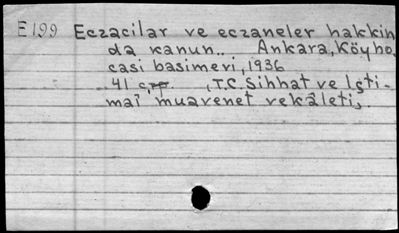 E199 Eczacilar ve eczaneler hakkin
da kanun.. Ankara, Köyho
casi basimevi, 1936
41 c, (T.C. Sihhat ve İçti-
maî muavenet vekâleti,